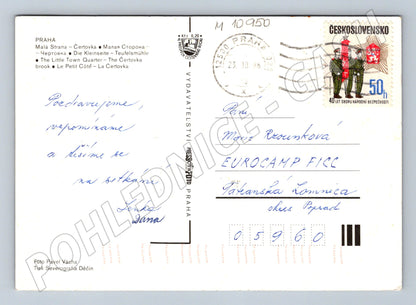 M 10950
PRAHA
Malá Strana – Čertovka • Малая Сторона –
Чертовка • Die Kleinseite – Teufelsmühle
• The Little Town Quarter – The Čertovka
brook • Le Petit Côté – La Čertovka
Pozdravujeme,
vzpomínáme
a těšíme se
na setkání
Lenka
Jana
VYDAVATELSTVÍ PRAHA
Foto Pavel Vácha
Tisk Severografia Děčín
PRAHA
ČESKOSLOVENSKO
50h
40 LET SBORU NÁRODNÍ BEZPEČNOSTI
Paní
EUROCAMP FICC
Tatranská Lomnica
okres Poprad
05960
POHLEDNICE - GALIN